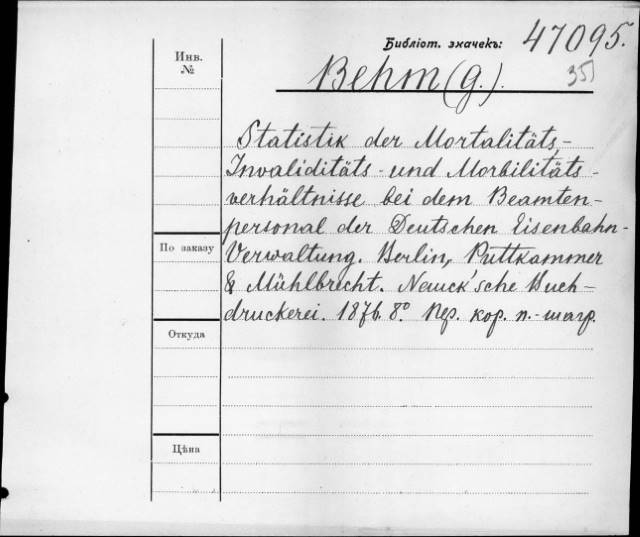 Библіот. значекъ: 47095.
35
Инв. №
Behm (G.).
Statistik der Mortalitäts-
Invaliditäts- und Morbilitäts-
verhältnisse bei dem Beamten-
personal der Deutschen Eisenbahn-
По заказу
Verwaltung. Berlin, Puttkammer
& Mühlbrecht. Nauck'sche Buch-
druckerei. 1876. 8° Пер. кор. п.-шагр.
Откуда
Цѣна